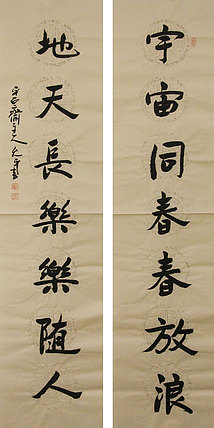 宇宙同春春放浪
地天長樂樂隨人